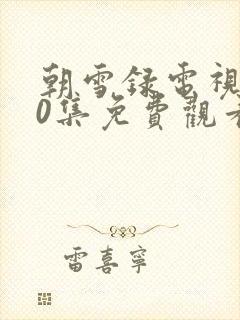 朝雪録電視
0集免費觀看
雷喜寧